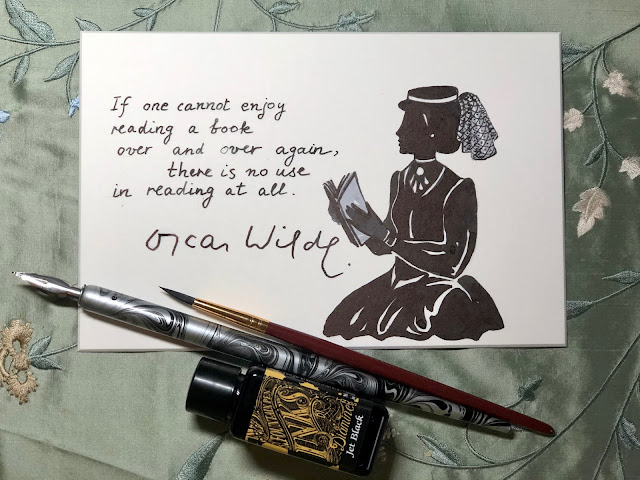 If one cannot enjoy
reading a book
over and over again,
there is no use
in reading at all.
Oscar Wilde.
INKS
Diamine
Jet Black